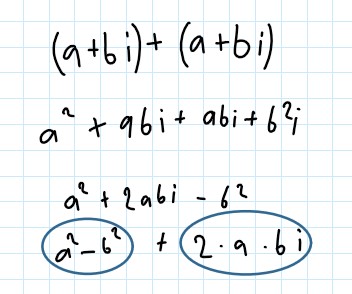 (a+bi)+(a+bi)
a² + abi + abi + b²i
a² + 2abi - b²
a²-b² + 2·a·bi